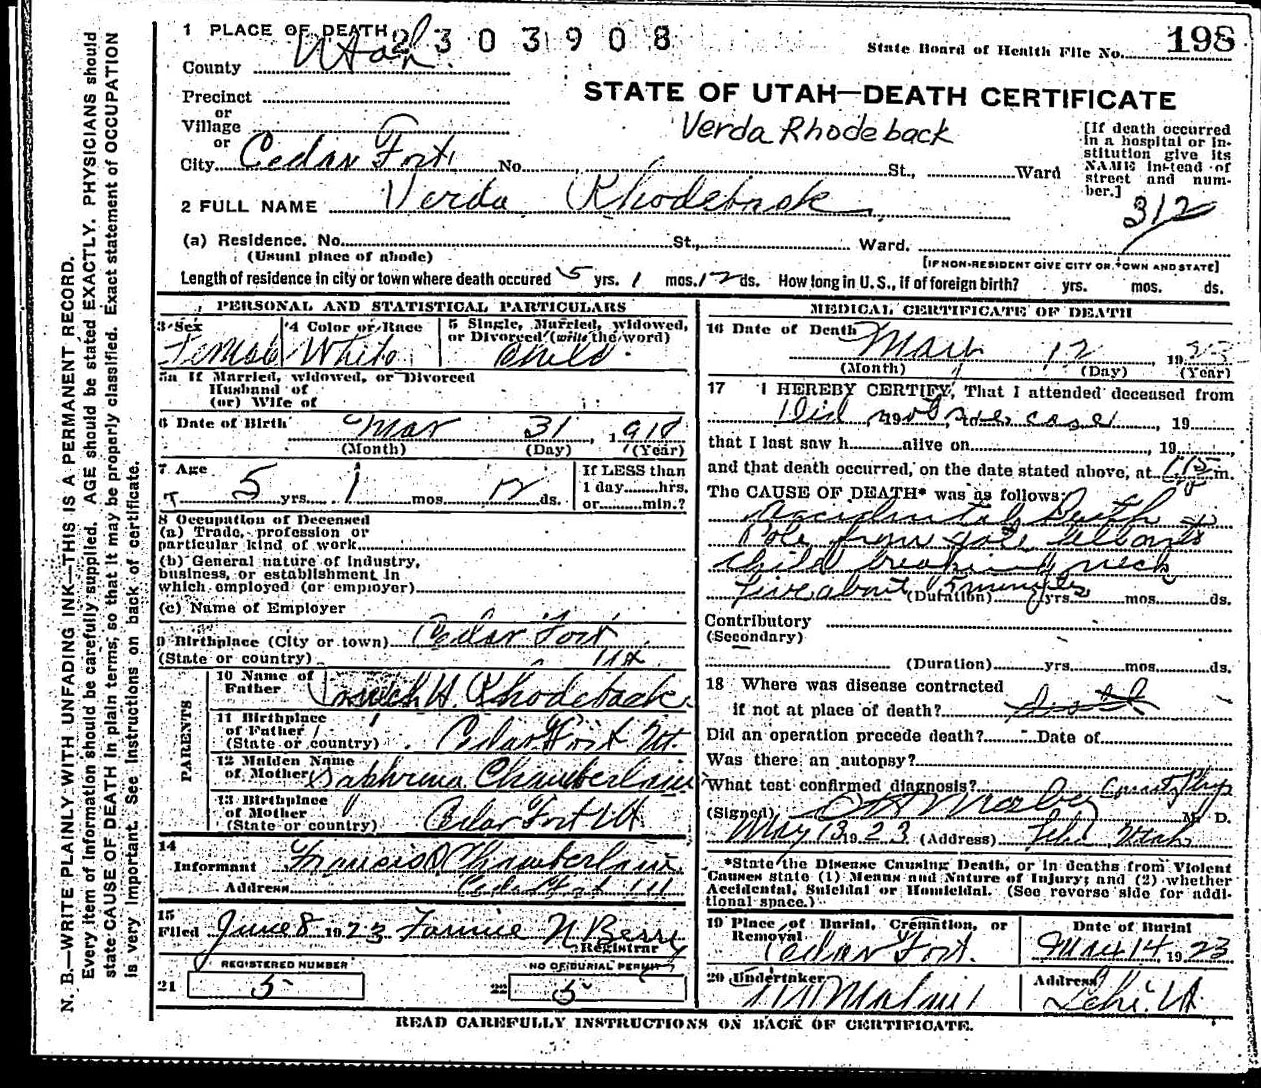 N. B.—WRITE PLAINLY WITH UNFADING INK—THIS IS A PERMANENT RECORD.
Every item of information should be carefully supplied. AGE should be stated EXACTLY. PHYSICIANS should
state CAUSE OF DEATH in plain terms, so that it may be properly classified. Exact statement of OCCUPATION
is very important. See Instructions on back of certificate.
1 PLACE OF DEATH 2303908
State Board of Health File No. 198
County Utah.
Precinct
or
Village
or
City Cedar Fort. No. St., Ward
STATE OF UTAH—DEATH CERTIFICATE
Verda Rhodeback
[If death occurred
in a hospital or in-
stitution give its
NAME instead of
street and num-
ber.]
312
2 FULL NAME Verda Rhodeback
(a) Residence. No. St., Ward.
(Usual place of abode)
[IF NON-RESIDENT GIVE CITY OR TOWN AND STATE]
Length of residence in city or town where death occured 5 yrs. 1 mos. 12 ds. How long in U. S., if of foreign birth? yrs. mos. ds.
PERSONAL AND STATISTICAL PARTICULARS
3 Sex 4 Color or Race 5 Single, Married, widowed,
or Divorced (write the word)
Female White Child.
5a If Married, widowed, or Divorced
Husband of
(or) Wife of
6 Date of Birth Mar 31, 1918
(Month) (Day) (Year)
7 Age
5 yrs. 1 mos. 12 ds.
If LESS than
1 day hrs.
or min.?
8 Occupation of Deceased
(a) Trade, profession or
particular kind of work
(b) General nature of industry,
business, or establishment in
which employed (or employer)
(c) Name of Employer
9 Birthplace (City or town) Cedar Fort
(State or country) Ut
PARENTS
10 Name of
Father H. Rhodeback
11 Birthplace
of Father
(State or country) Cedar Fort Ut.
12 Maiden Name
of Mother Chamberlain
13 Birthplace
of Mother
(State or country) Cedar Fort Ut
14
Informant Francis D Chamberlain
Address Cedar Fort Ut
15
Filed June 8 1923 Fannie N Berry
Registrar
REGISTERED NUMBER
21 5
NO OF BURIAL PERMIT
22 5
MEDICAL CERTIFICATE OF DEATH
16 Date of Death May 12 1923
(Month) (Day) (Year)
17 I HEREBY CERTIFY, That I attended deceased from
Did not see case, 19
that I last saw h alive on , 19
and that death occurred, on the date stated above, at 1:15 m.
The CAUSE OF DEATH* was as follows:
Accidental Death
Pole from gate fell onto
Child breaking neck
Live about 5 minutes
(Duration) yrs. mos. ds.
Contributory
(Secondary)
(Duration) yrs. mos. ds.
18 Where was disease contracted
if not at place of death?
Did an operation precede death? Date of
Was there an autopsy?
What test confirmed diagnosis? County Phys
(Signed) M. D.
May 13 1923 (Address) Lehi Utah
*State the Disease Causing Death, or in deaths from Violent
Causes state (1) Means and Nature of Injury; and (2) whether
Accidental, Suicidal or Homicidal. (See reverse side for addi-
tional space.)
19 Place of Burial, Cremation, or
Removal
Cedar Fort.
Date of Burial
May 14 1923
20 Undertaker
Address
Lehi. Ut
READ CAREFULLY INSTRUCTIONS ON BACK OF CERTIFICATE.